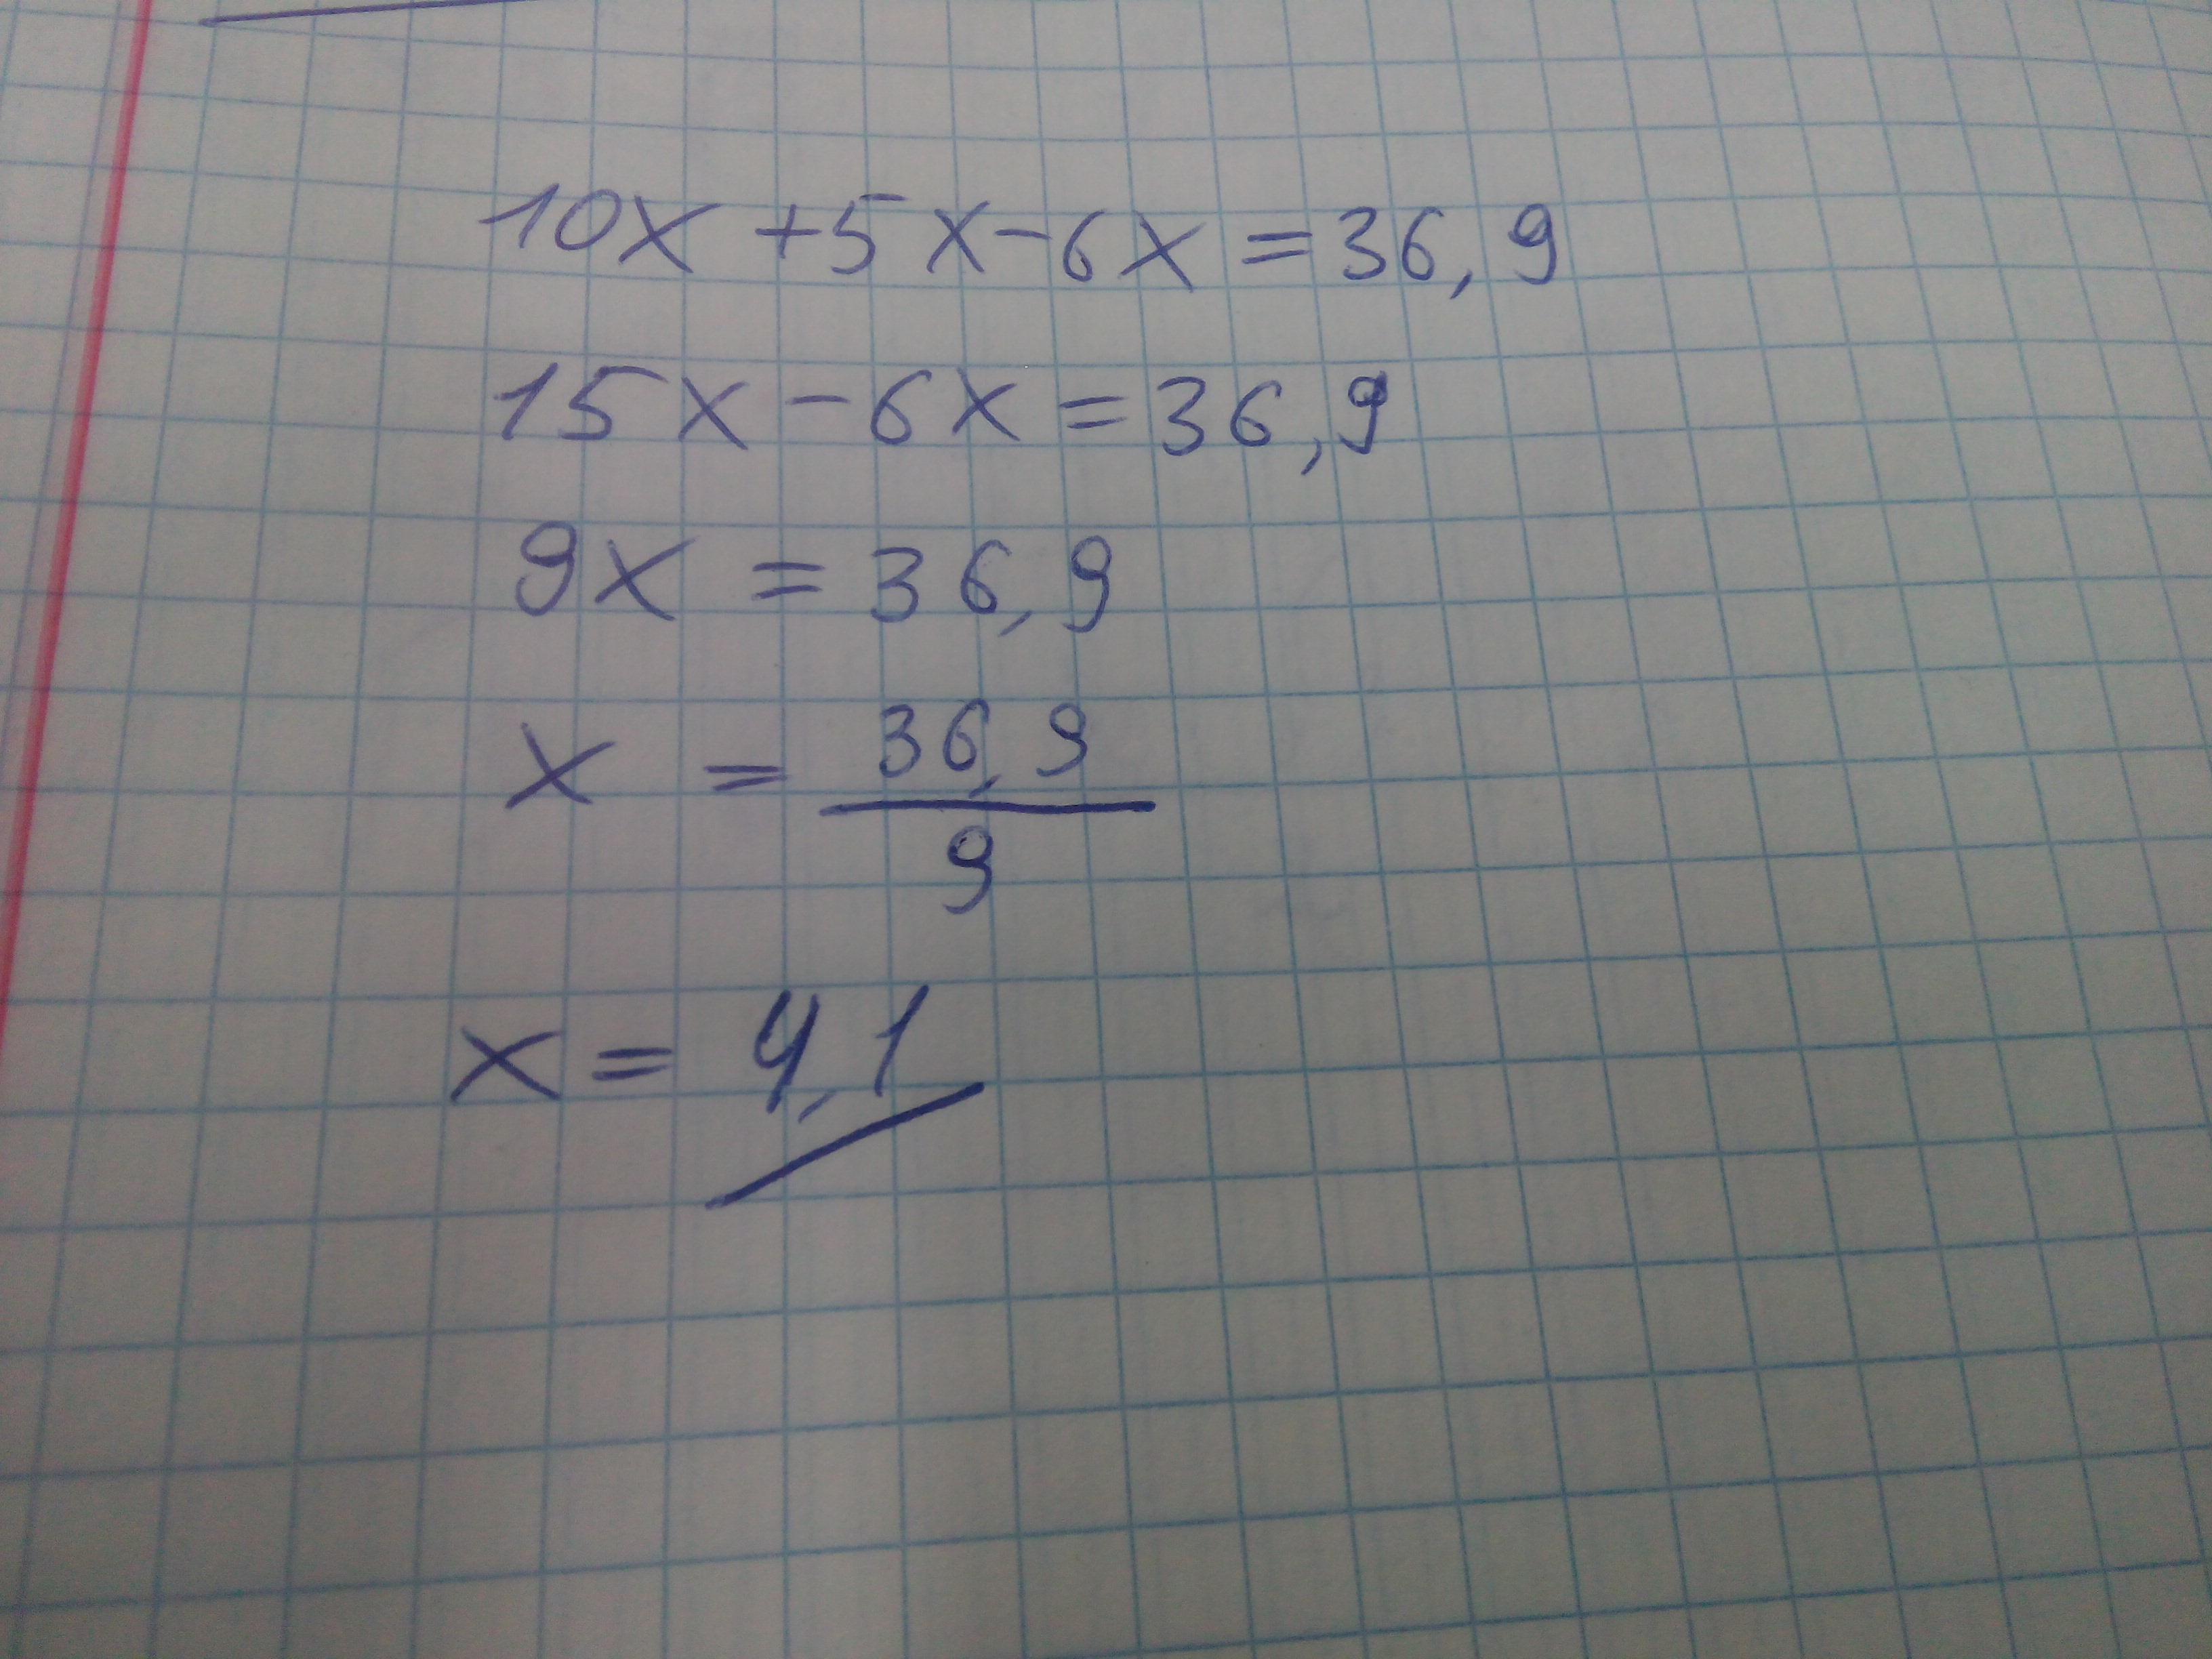 10x + 5x - 6x = 36,9
15x - 6x = 36,9
9x = 36,9
x = 36,9
9
x = 4,1